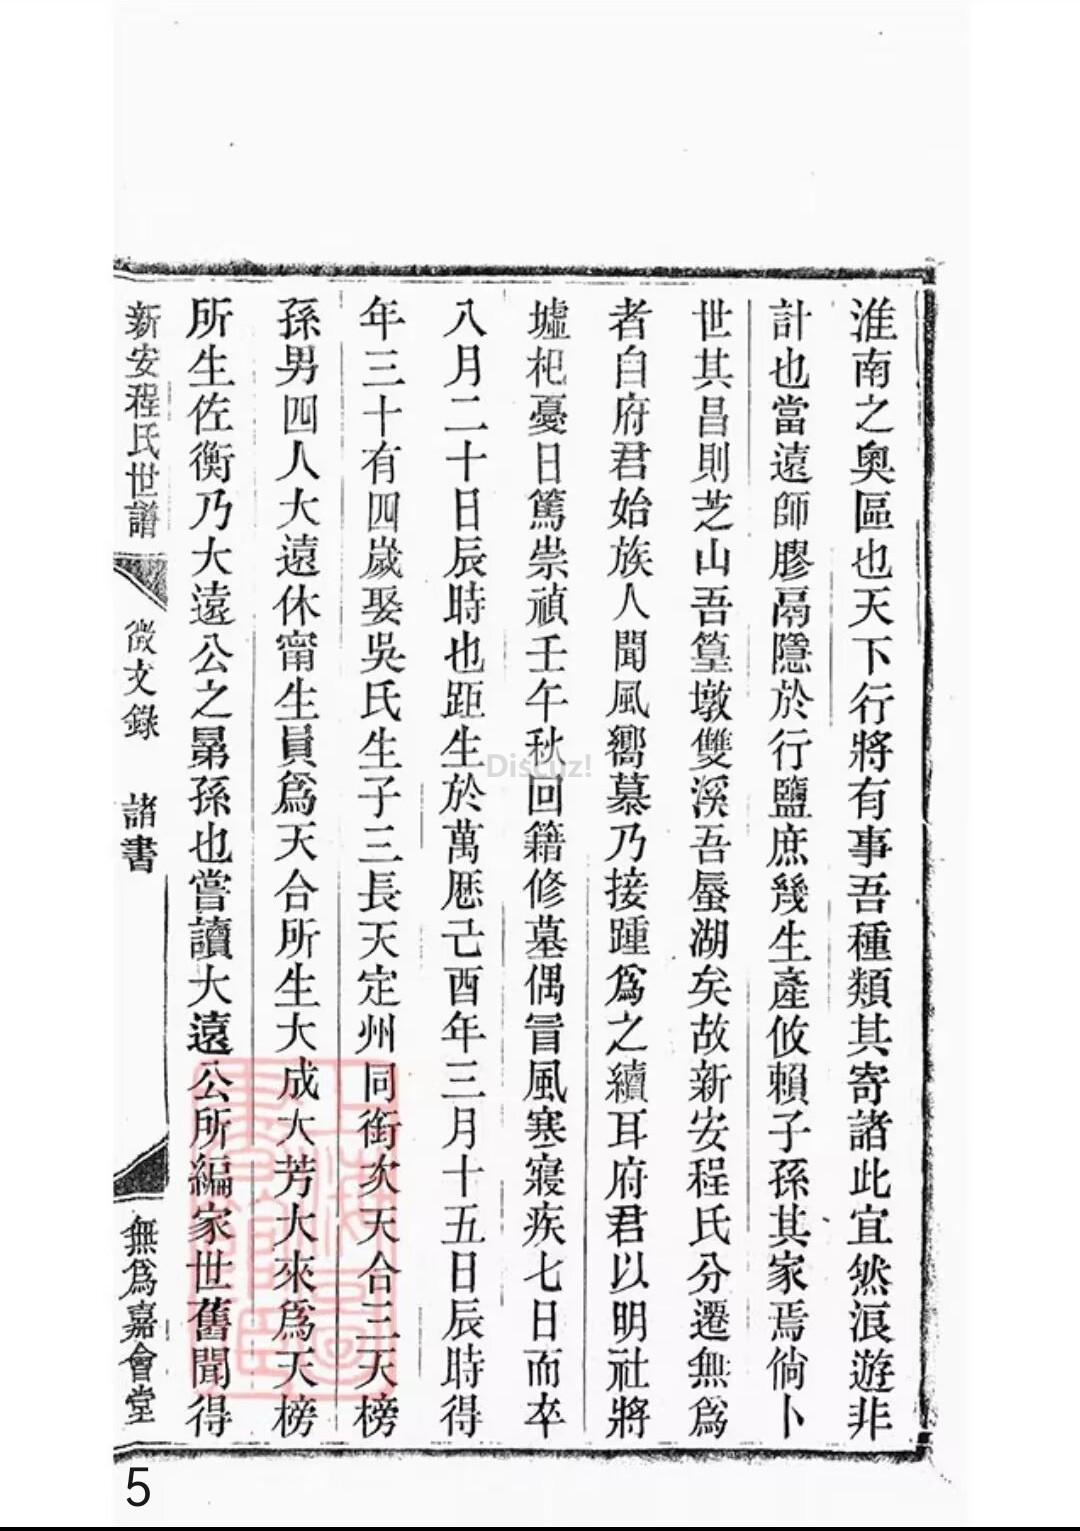 淮南之奧區也天下行將有事吾種類其寄諸此宜然浪遊非
計也當遠師膠鬲隱於行鹽庶幾生產攸賴子孫其家焉倘卜
世其昌則芝山吾篁墩雙溪吾蜃湖矣故新安程氏分遷無爲
者自府君始族人聞風嚮慕乃接踵爲之續耳府君以明社將
墟杞憂日篤崇禎壬午秋回籍修墓偶冒風寒寢疾七日而卒
八月二十日辰時也距生於萬厯己酉年三月十五日辰時得
年三十有四歲娶吳氏生子三長天定州同銜次天合三天榜
孫男四人大遠休甯生員爲天合所生大成大芳大來爲天榜
所生佐衡乃大遠公之晜孫也嘗讀大遠公所編家世舊聞得
新安程氏世譜 徵文錄 諸書 無爲嘉會堂
Discuz!
上海圖書館藏
5